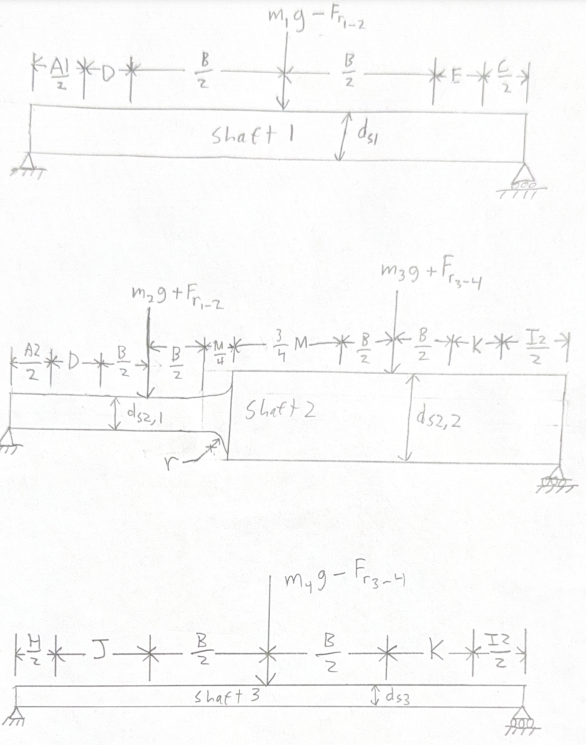 m₁g − F_r₁₋₂
A1/2 D B/2 B/2 E C/2
shaft 1 d_s1
m₃g + F_r₃₋₄
m₂g + F_r₁₋₂
A2/2 D B/2 B/2 M/4 3/4 M B/2 B/2 K I2/2
d_s2,1 shaft 2 d_s2,2
r
m₄g − F_r₃₋₄
H/2 J B/2 B/2 K I2/2
shaft 3 d_s3